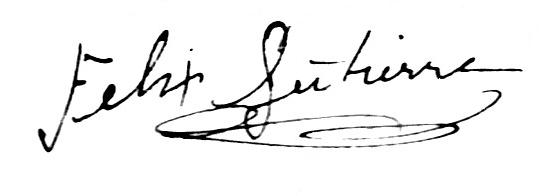 Felix Gutierre